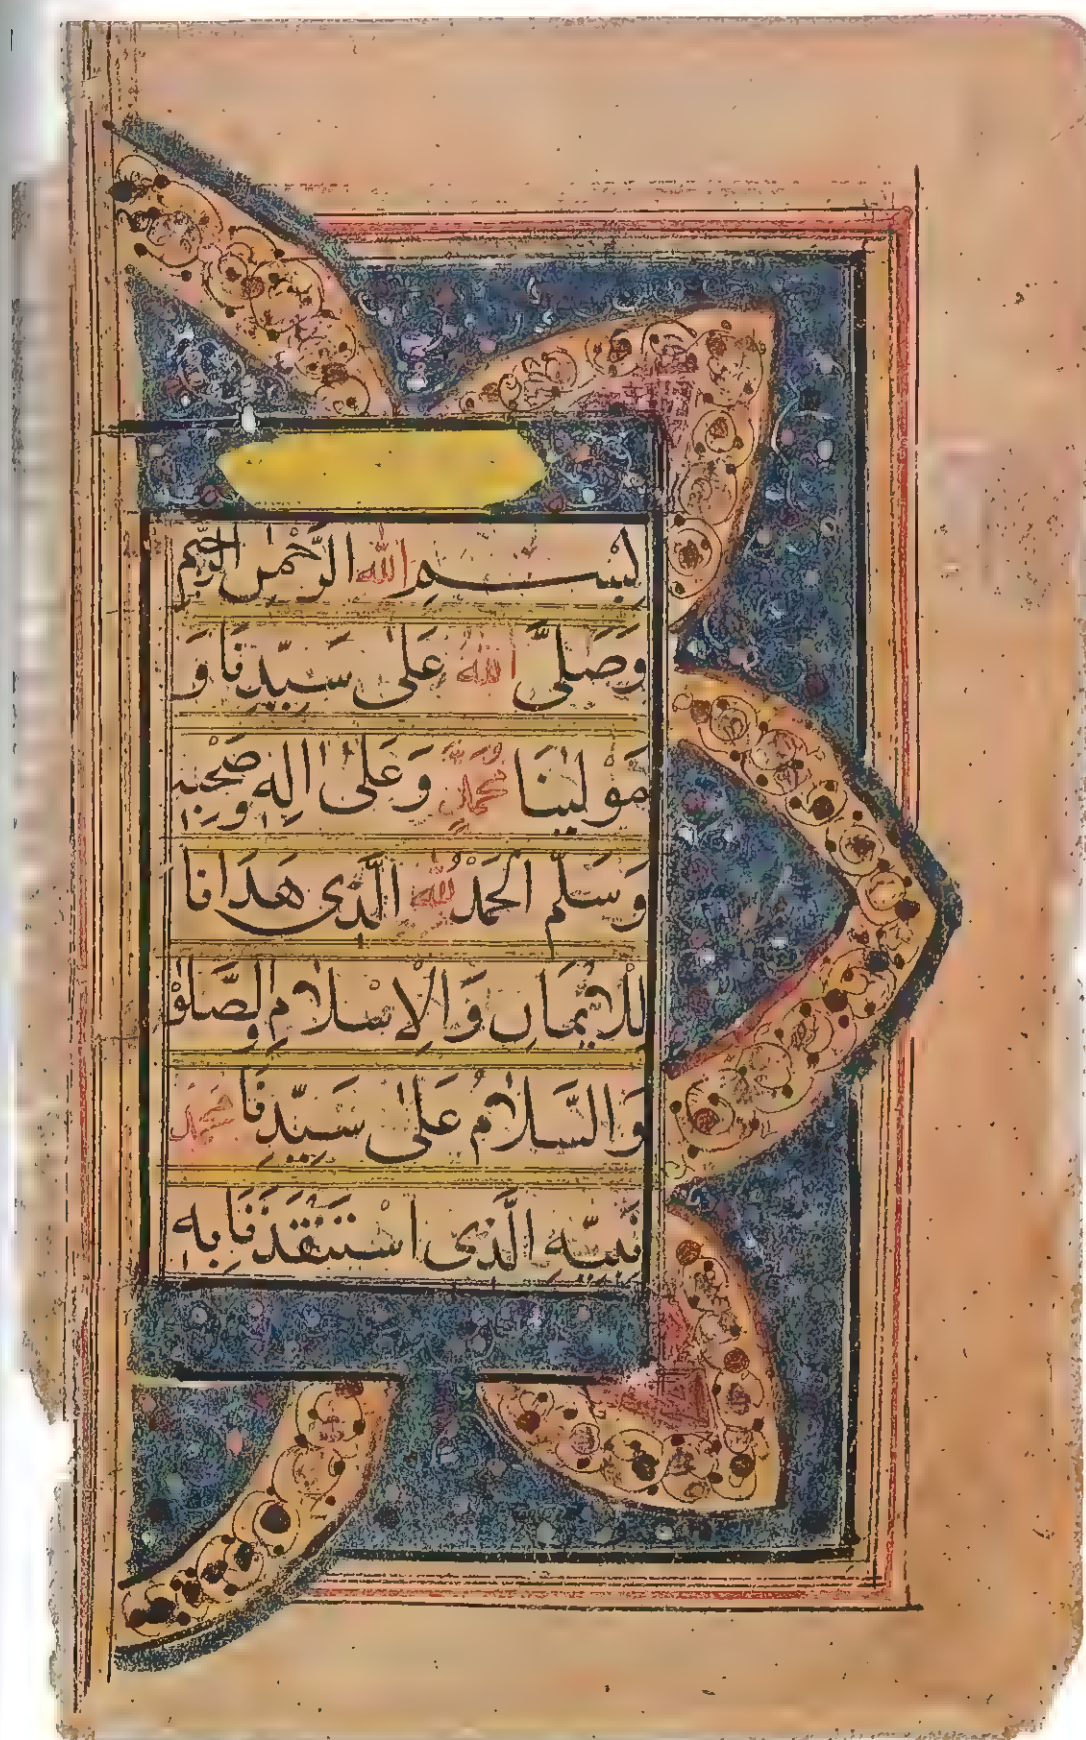 بِسْمِ اللهِ الرَّحْمٰنِ الرَّحِيْمِ
وَصَلَّى اللهُ عَلٰى سَيِّدِنَا وَ
مَوْلٰينَا مُحَمَّدٍ وَعَلٰى اٰلِهٖ وَصَحْبِهٖ
وَسَلَّمَ اَلْحَمْدُ لِلّٰهِ الَّذِى هَدَانَا
لِلْاِيْمَانِ وَالْاِسْلَامِ وَالصَّلٰوةُ
وَالسَّلَامُ عَلٰى سَيِّدِنَا مُحَمَّدٍ
نَبِيِّهِ الَّذِى اسْتَنْقَذَنَا بِهٖ